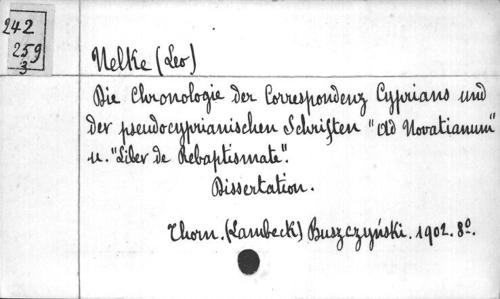 242
259
3
Nelke (Leo)
Die Chronologie der Correspondenz Cyprians und
der pseudocyprianischen Schriften "Ad Novatianum"
u. "Liber de Rebaptismate".
Dissertation.
Thorn. (Lambeck) Buszczyński. 1902. 8º.